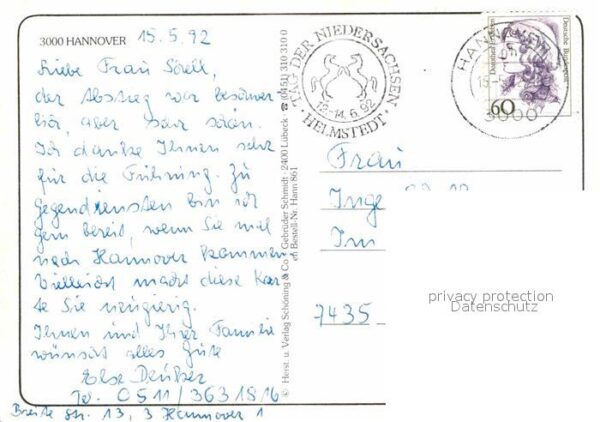 3000 HANNOVER 15.5.92
Liebe Frau
der Abstieg war beschwer-
lich, aber sehr schön.
Ich danke Ihnen sehr
für die Führung. Zu
Gegendiensten bin ich
gern bereit, wenn Sie mal
nach Hannover kommen.
Vielleicht macht diese Kar-
te Sie neugierig.
Ihnen und Ihrer Familie
wünscht alles Gute
Else
Tel. 0511/3631816
Breite Str. 13, 3 Hannover 1
© Horst. u. Verlag Schöning & Co · Gebrüder Schmidt · 2400 Lübeck · ☎ (0451) 310 310-0
Bestell-Nr. Hann 861
TAG DER NIEDERSACHSEN
12.-14.6.92
· HELMSTEDT ·
HANNOVER
3000
Deutsche Bundespost
60
Frau
Inge
Im
7435
privacy protection
Datenschutz